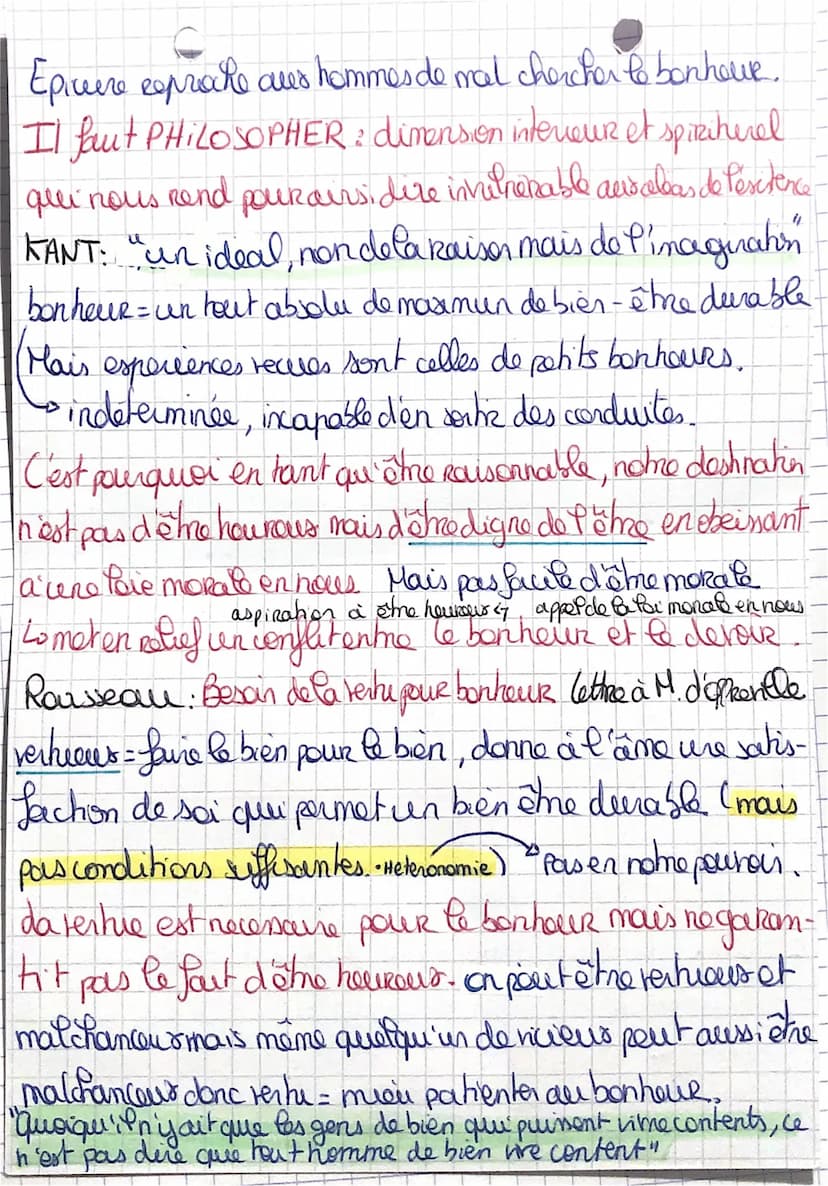 Epicure reproche aux hommes de mal chercher le bonheur.
Il faut PHILOSOPHER : dimension interieur et spirituel
qui nous rend pour ainsi dire invulnérable aux aléas de l'existence
KANT: "un idéal, non de la raison mais de l'imagination"
bonheur = un tout absolu de maximun de bien-être durable
(Mais experiences recues sont celles de petits bonheurs.
↳ indéterminée, incapable d'en sortir des conduites.
C'est pourquoi en tant qu'être raisonnable, notre destination
n'est pas d'être heureux mais d'être digne de l'être en obeissant
à une loie morale en nous Mais pas facile d'être morale
aspiration à être heureux ↯ appel de la loi morale en nous
↳ met en relief un conflit entre le bonheur et le devoir.
Rousseau : Besoin de la vertu pour bonheur lettre à M. d'
vertueux = faire le bien pour le bien, donne à l'âme une satis-
faction de soi qui permet un bien être durable (mais
pas conditions suffisantes. • Heteronomie) → Pas en notre pouvoir.
La vertue est necessaire pour le bonheur mais ne garan-
tit pas le fait d'être heureux. on peut être vertueux et
malchanceux mais même quelqu'un de vicieux peut aussi être
malchanceux donc vertu = mieu patienter au bonheur.
"Quoiqu'il n'y ait que les gens de bien qui puissent vivre contents, ce
n'est pas dire que tout homme de bien vive content"